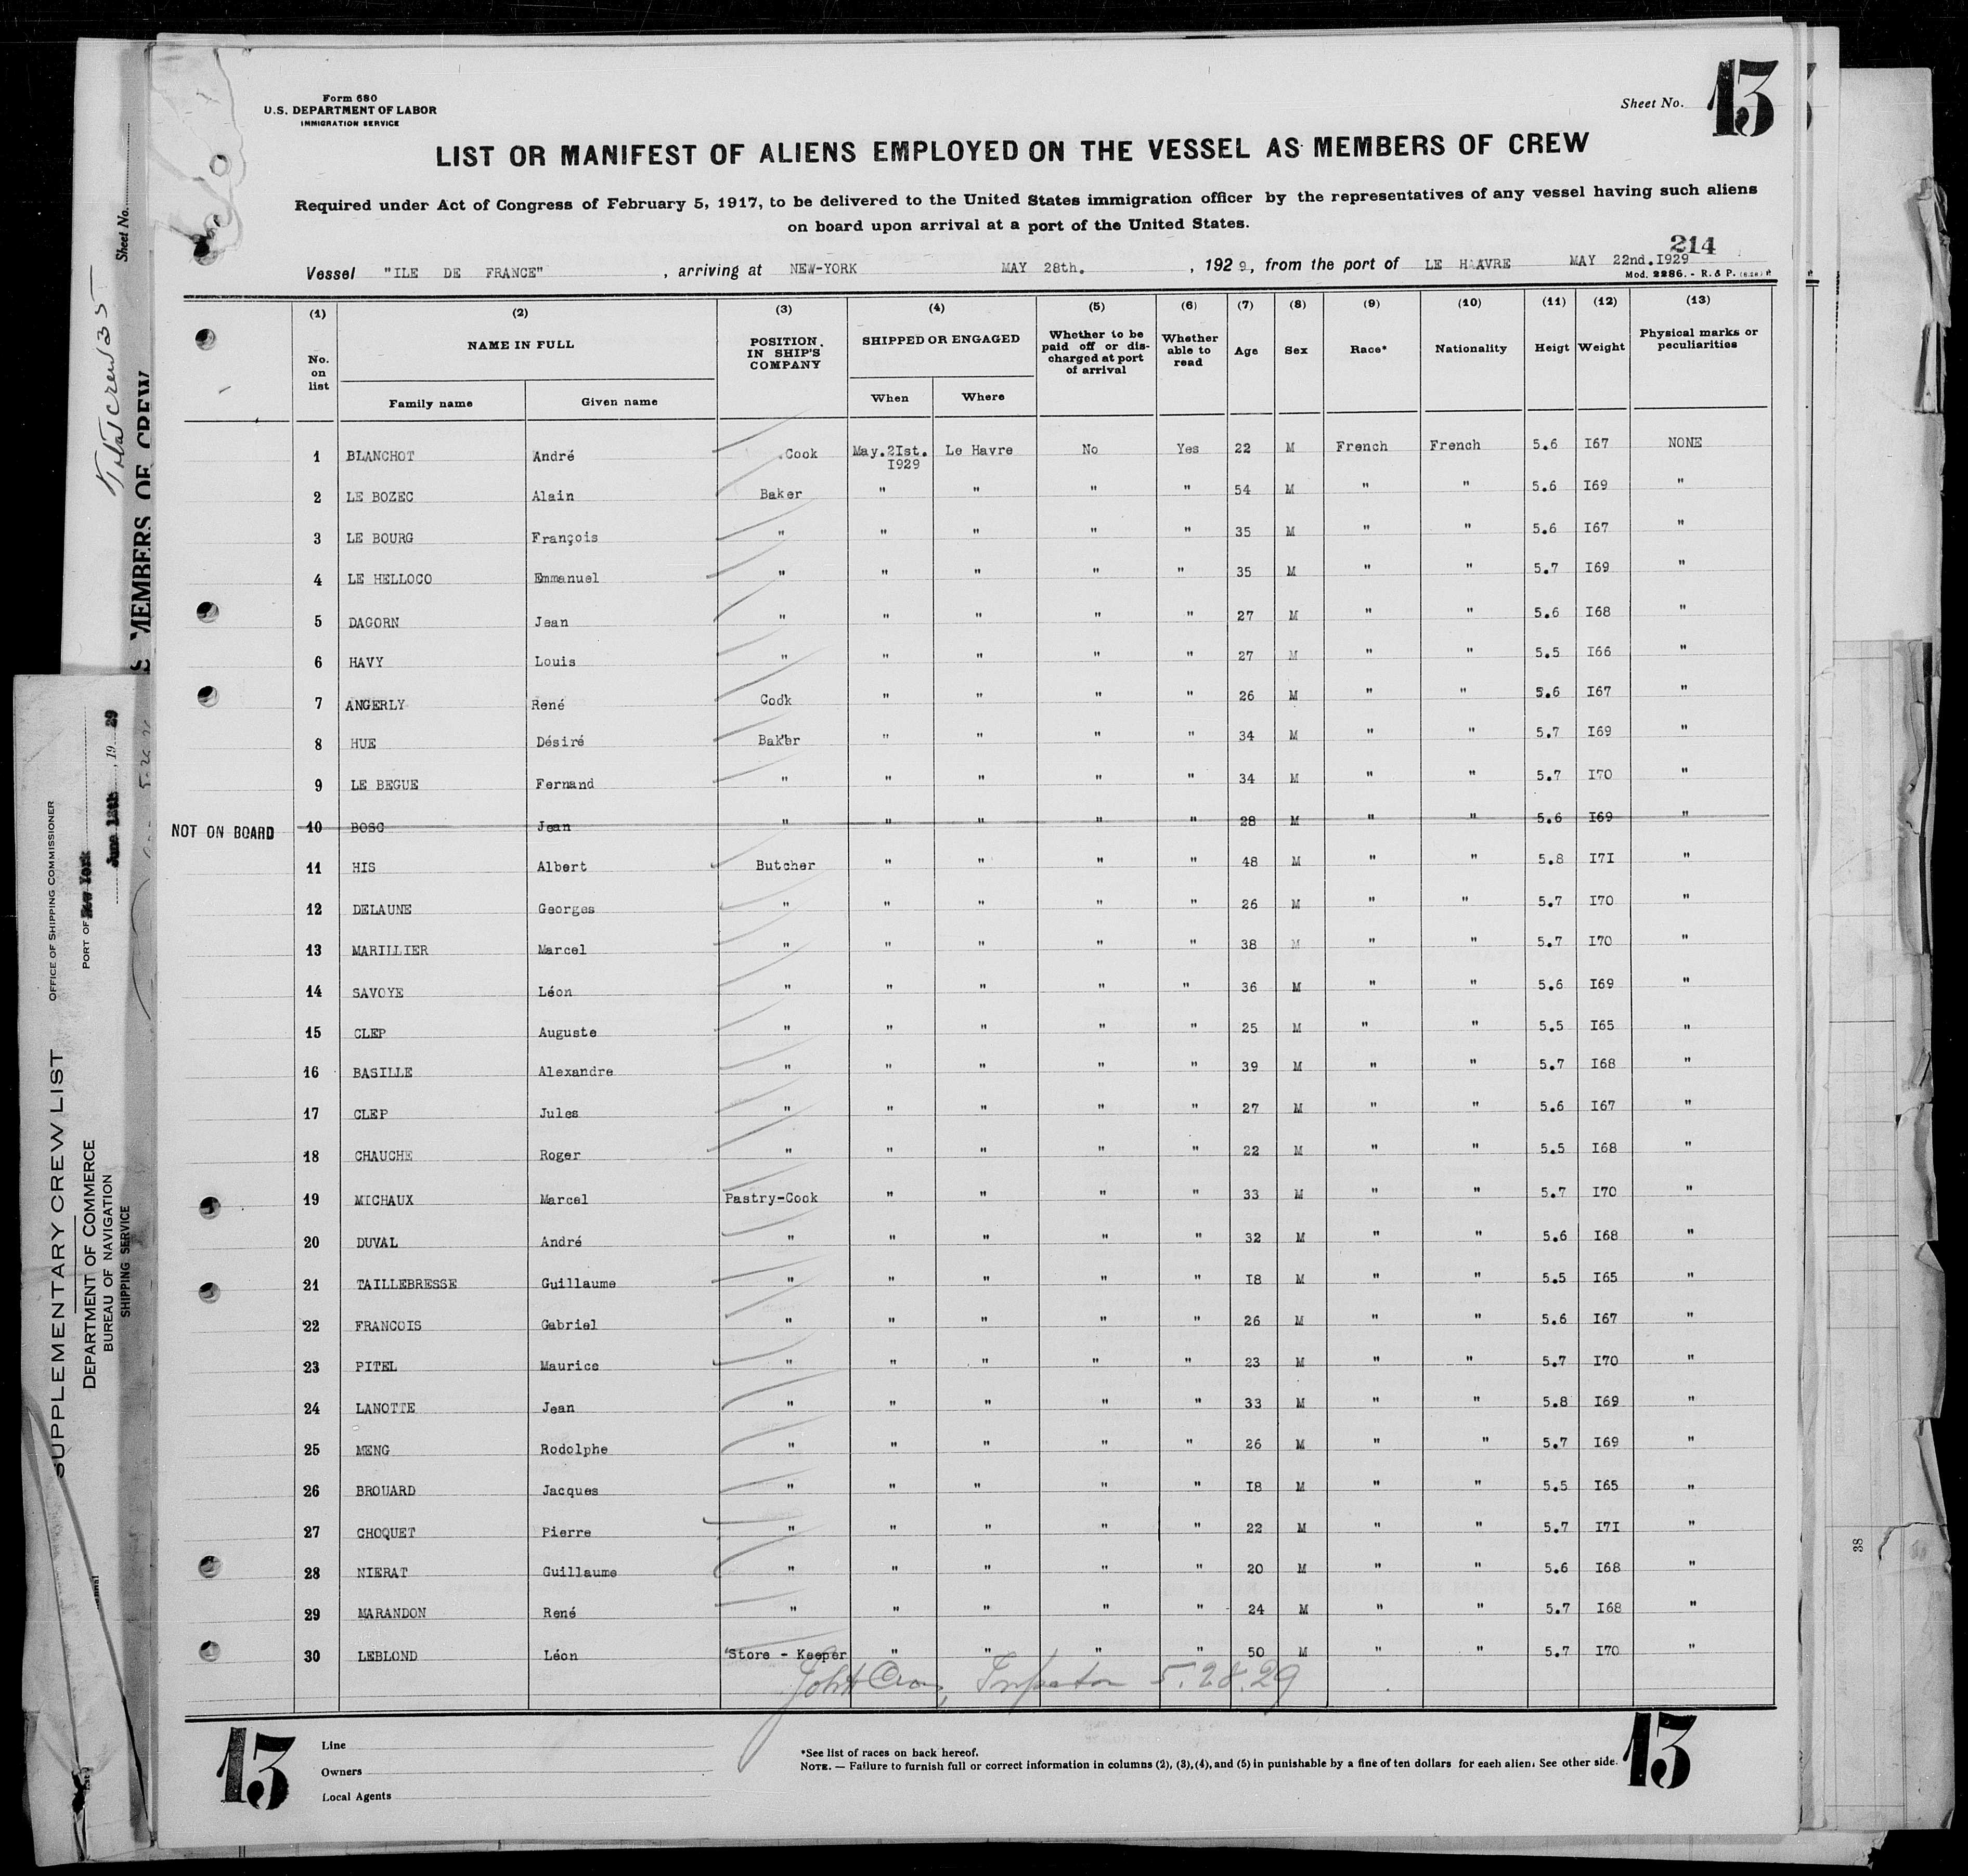 Form 680
U.S. DEPARTMENT OF LABOR
IMMIGRATION SERVICE
Sheet No. 13
LIST OR MANIFEST OF ALIENS EMPLOYED ON THE VESSEL AS MEMBERS OF CREW
Required under Act of Congress of February 5, 1917, to be delivered to the United States immigration officer by the representatives of any vessel having such aliens
on board upon arrival at a port of the United States.
214
Vessel "ILE DE FRANCE" , arriving at NEW-YORK MAY 28th. , 1929, from the port of LE HAAVRE MAY 22nd.I929
Mod. 2286. - R. & P.
(1) (2) (3) (4) (5) (6) (7) (8) (9) (10) (11) (12) (13)
No. on list NAME IN FULL Family name Given name POSITION IN SHIP'S COMPANY SHIPPED OR ENGAGED When Where Whether to be paid off or discharged at port of arrival Whether able to read Age Sex Race* Nationality Heigt Weight Physical marks or peculiarities
1 BLANCHOT André Cook May.2Ist. I929 Le Havre No Yes 22 M French French 5.6 I67 NONE
2 LE BOZEC Alain Baker " " " " 54 M " " 5.6 I69 "
3 LE BOURG François " " " " " 35 M " " 5.6 I67 "
4 LE HELLOCO Emmanuel " " " " " 35 M " " 5.7 I69 "
5 DAGORN Jean " " " " " 27 M " " 5.6 I68 "
6 HAVY Louis " " " " " 27 M " " 5.5 I66 "
7 ANGERLY René Cook " " " " 26 M " " 5.6 I67 "
8 HUE Désiré Baker " " " " 34 M " " 5.7 I69 "
9 LE BEGUE Fernand " " " " " 34 M " " 5.7 I70 "
NOT ON BOARD 10 BOSC Jean " " " " " 28 M " " 5.6 I69 "
11 HIS Albert Butcher " " " " 48 M " " 5.8 I7I "
12 DELAUNE Georges " " " " " 26 M " " 5.7 I70 "
13 MARILLIER Marcel " " " " " 38 M " " 5.7 I70 "
14 SAVOYE Léon " " " " " 36 M " " 5.6 I69 "
15 CLEP Auguste " " " " " 25 M " " 5.5 I65 "
16 BASILLE Alexandre " " " " " 39 M " " 5.7 I68 "
17 CLEP Jules " " " " " 27 M " " 5.6 I67 "
18 CHAUCHE Roger " " " " " 22 M " " 5.5 I68 "
19 MICHAUX Marcel Pastry-Cook " " " " 33 M " " 5.7 I70 "
20 DUVAL André " " " " " 32 M " " 5.6 I68 "
21 TAILLEBRESSE Guillaume " " " " " I8 M " " 5.5 I65 "
22 FRANCOIS Gabriel " " " " " 26 M " " 5.6 I67 "
23 PITEL Maurice " " " " " 23 M " " 5.7 I70 "
24 LANOTTE Jean " " " " " 33 M " " 5.8 I69 "
25 MENG Rodolphe " " " " " 26 M " " 5.7 I69 "
26 BROUARD Jacques " " " " " I8 M " " 5.5 I65 "
27 CHOQUET Pierre " " " " " 22 M " " 5.7 I7I "
28 NIERAT Guillaume " " " " " 20 M " " 5.6 I68 "
29 MARANDON René " " " " " 24 M " " 5.7 I68 "
30 LEBLOND Léon Store - Keeper " " " " 50 M " " 5.7 I70 "
Inspector 5.28.29
13
Line
Owners
Local Agents
*See list of races on back hereof.
NOTE. — Failure to furnish full or correct information in columns (2), (3), (4), and (5) in punishable by a fine of ten dollars for each alien. See other side.
13
Sheet No.
Total crew 35
MEMBERS OF CREW
SUPPLEMENTARY CREW LIST
DEPARTMENT OF COMMERCE
BUREAU OF NAVIGATION
SHIPPING SERVICE
OFFICE OF SHIPPING COMMISSIONER
PORT OF New York
June 12th , 19 29
38